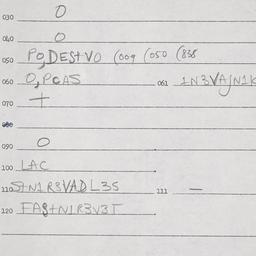 030 0
040 0
050 Pg,DEStVO (009 (050 (838
060 0,PCAS 061 1N3VAJN1K
070 +
080
090 0
100 LAC
110 StN1R3VADL35 111 —
120 FAStN1R3V3T